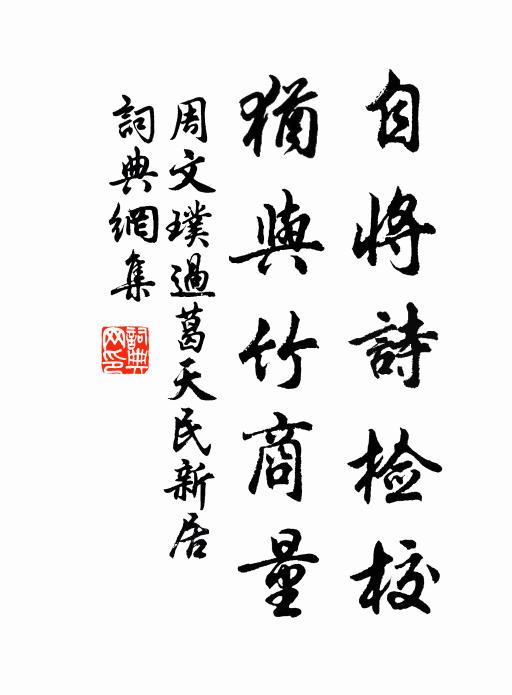 自將詩檢校
猶與竹商量
周文璞過葛天民新居
詞典網集
詞典網印